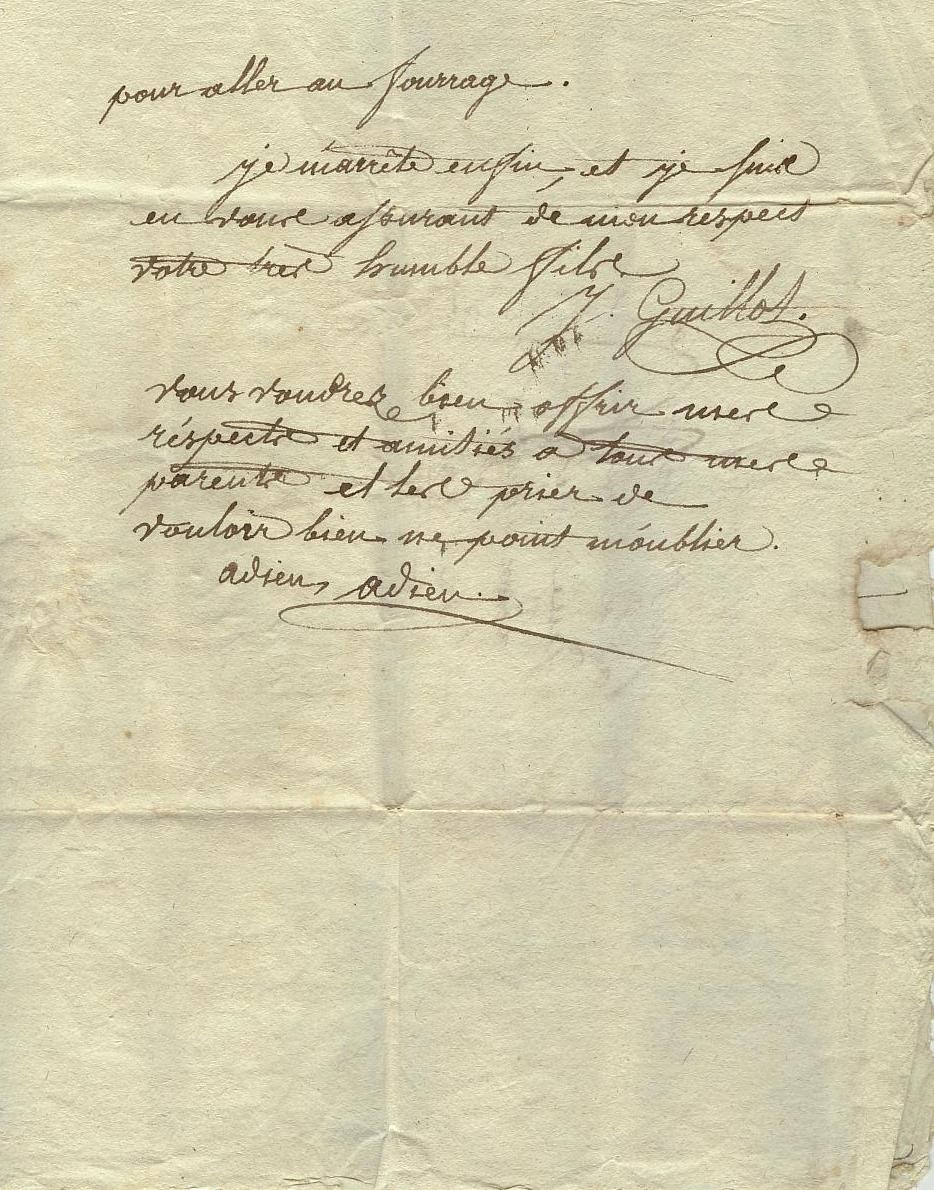 pour aller au fourrage.
je m'arrête enfin, et je finis
en vous assurant de mon respect
votre très humble fils
J. Guillot.
vous voudrez bien offrir mes
réspects et amitiés a tous mes
parents et les prier de
vouloir bien ne point m'oublier.
adieu, adieu.